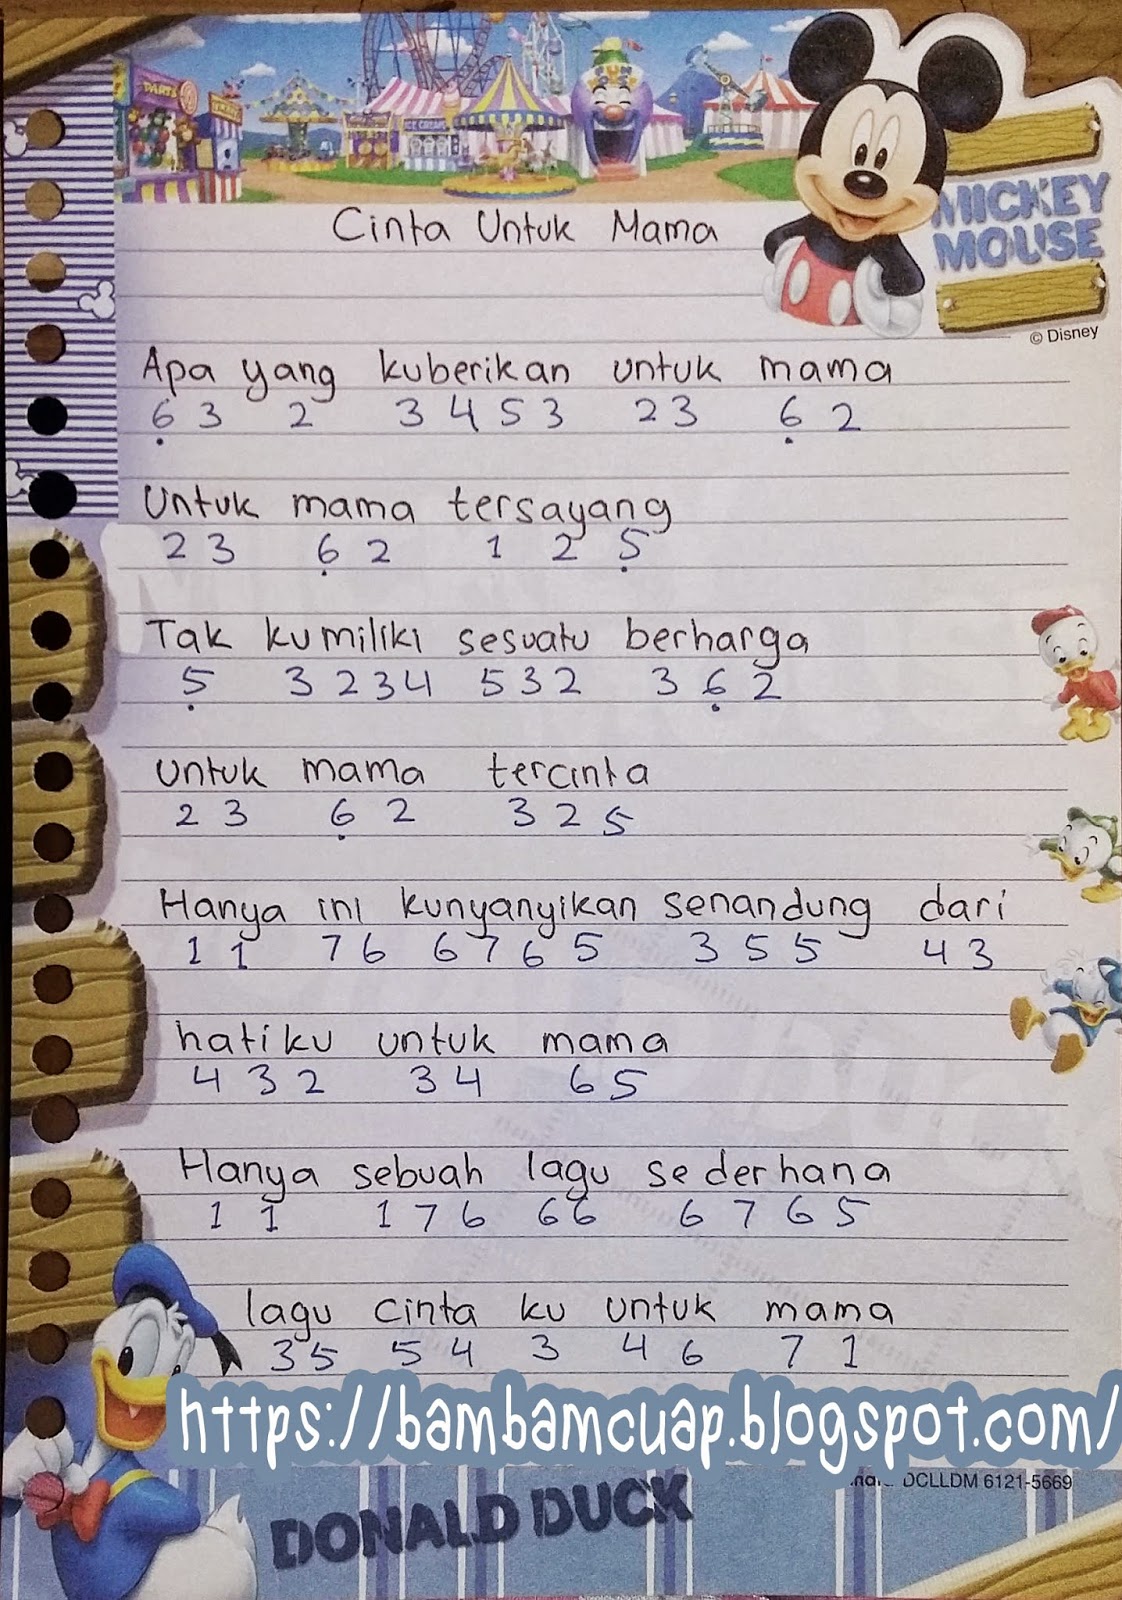 PARTS
ICE CREAM
FUN
MICKEY
MOUSE
© Disney
Cinta Untuk Mama
Apa yang kuberikan untuk mama
6̣ 3 2 3 4 5 3 2 3 6̣ 2
Untuk mama tersayang
2 3 6̣ 2 1 2 5̣
Tak kumiliki sesuatu berharga
5̣ 3 2 3 4 5 3 2 3 6̣ 2
untuk mama tercinta
2 3 6̣ 2 3 2 5
Hanya ini kunyanyikan senandung dari
1 1̇ 7 6 6 7 6 5 3 5 5 4 3
hatiku untuk mama
4 3 2 3 4 6 5
Hanya sebuah lagu sederhana
1 1̇ 1 7 6 6 6 6 7 6 5
lagu cinta ku untuk mama
3 5 5 4 3 4 6 7 1
https://bambamcuap.blogspot.com/
DCLLDM 6121-5669
DONALD DUCK